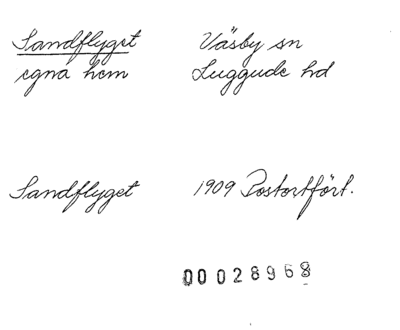 Sandflyget Väsby sn
egna hem Luggude hd
Sandflyget 1909 Postortfört.
00028968